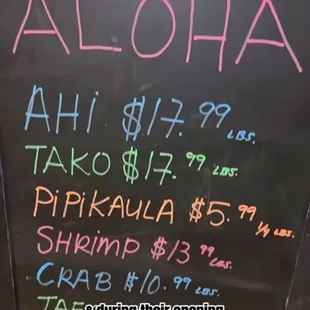 ALOHA
AHi $17.99 LBS.
TAKO $17.99 LBS.
PiPiKAULA $5.99 1/4 LBS.
SHRiMP $13.99 LBS.
CRAB $10.99 LBS.
during their opening